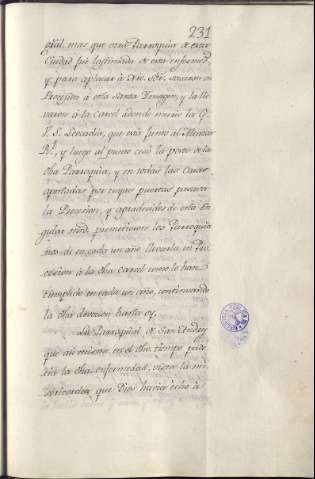 231
qual, mas que otra Parroquia de esta
Ciudad fue lastimada de esta enfermed.
y para aplacar à Nro. Sor. sacaron en
Procesion à esta Santa Imagen, y la lle
varon à la Carcel adonde murio la Gl.
V. S. Leocadia, que està junto al Alcazar
Rl. y luego al punto cesò la peste de la
dha Parroquia, y en todas las Casas
apestadas, por cuyas puertas passaba
la Procesion; y agradecidos de esta sin
gular mrd. prometieron los Parroquia
nos de en cada un año llevarla en Pro
cesion à la dha Carcel como lo han
cumplido en cada un año, continuando
la dha devocion hasta oy.
La Parroquial de San Andres
que asi mismo en el dho. tiempo pade
cia la dha. enfermedad, visto la mi
sericordia que Dios havia echo à